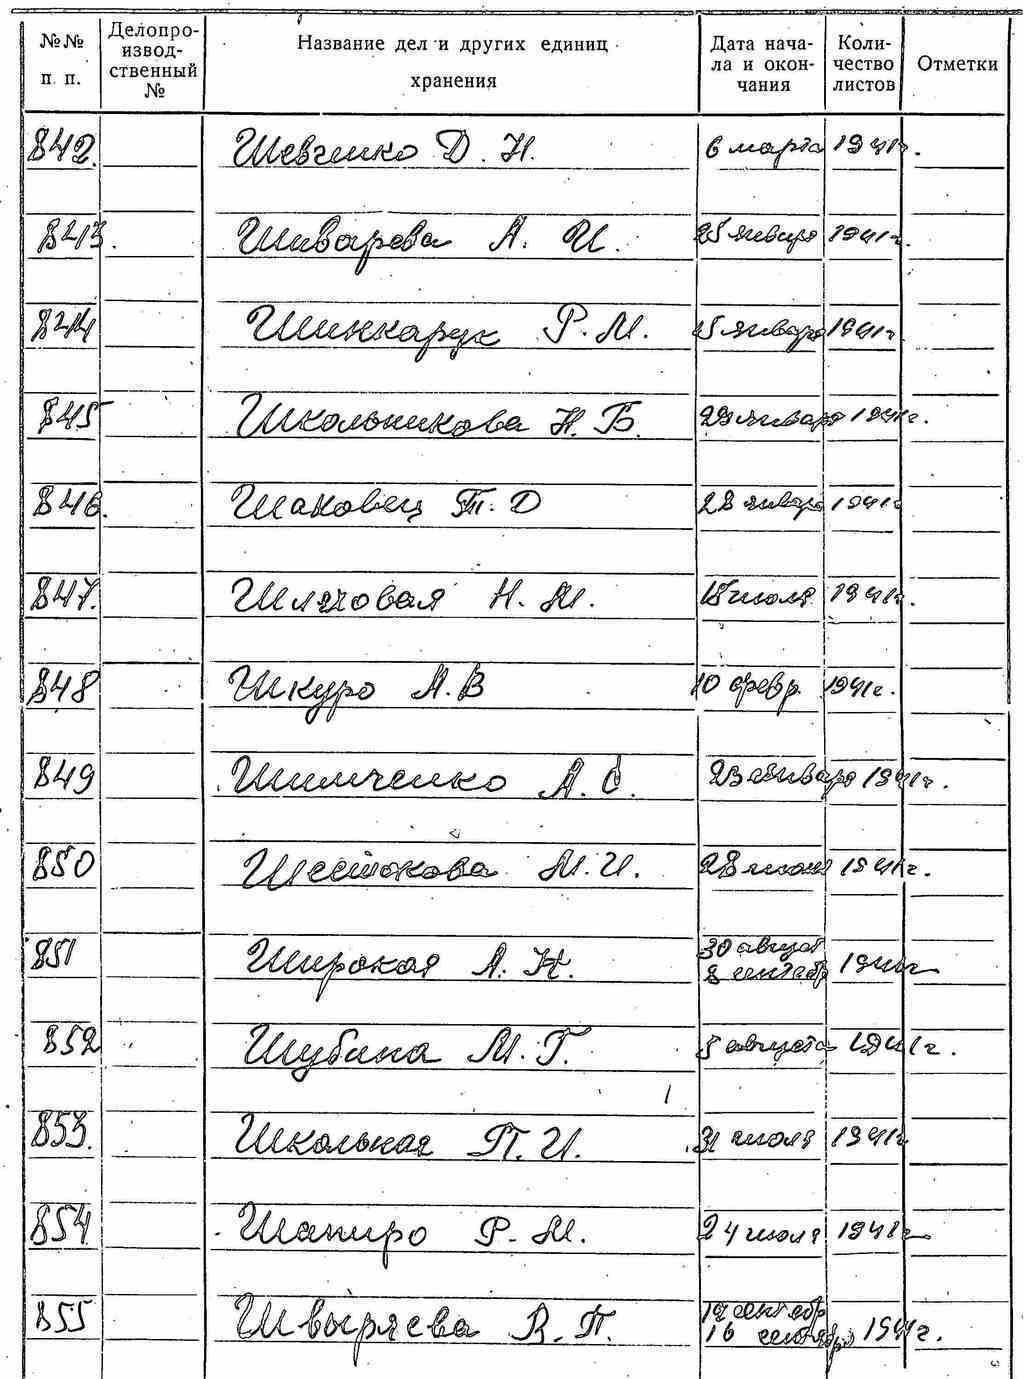 №№ п. п. Делопро-изводственный № Название дел и других единиц хранения Дата начала и окончания Количество листов Отметки
842. Шевченко Д. Н. 6 марта 1941г.
843. Шиварева А. И. 25 января 1941г.
844 Шинкарук Р. М. 25 января 1941г.
845 Школьникова Н. Б. 29 января 1941г.
846. Шаковец Т. Д 28 января 1941г
847. Шляховая Н. М. 18 июля 1941г.
848 Шкуро А. В 10 февр. 1941г.
849 Шимченко А. С. 23 января 1941г.
850 Шестокова М. И. 28 июня 1941г.
851 Широкая А. Н. 30 август 8 сентябр 1941г
852 Шубина М. Г. 5 августа 1941г.
853. Школьная П. И. 31 июля 1941г
854 Шапиро Р. М. 24 июля 1941г.
855 Швыряева В. П. 12 сентябр 16 сентября 1941г.